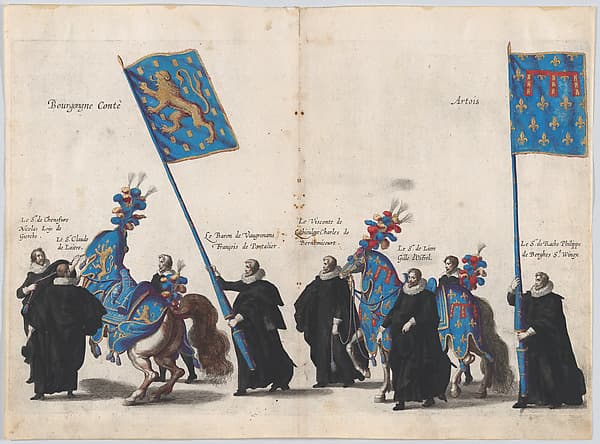 Bourgongne Contè
Artois
Le Sr. de Chenesture
Nicolas Loys de
Le Sr. Claude
de Laitre.
Le Baron de Vaugrenans
François de Pontalier
Le Visconte de
Charles de
Bernemicourt.
Le Sr. de Liere
Gille
Le Sr. de Bachs Philippe
de Berghes Sr. Winge